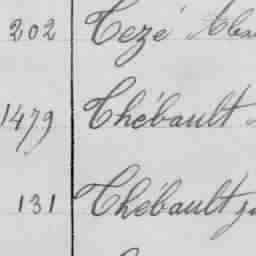 202 Cezé
1479 Thébault
131 Thébault